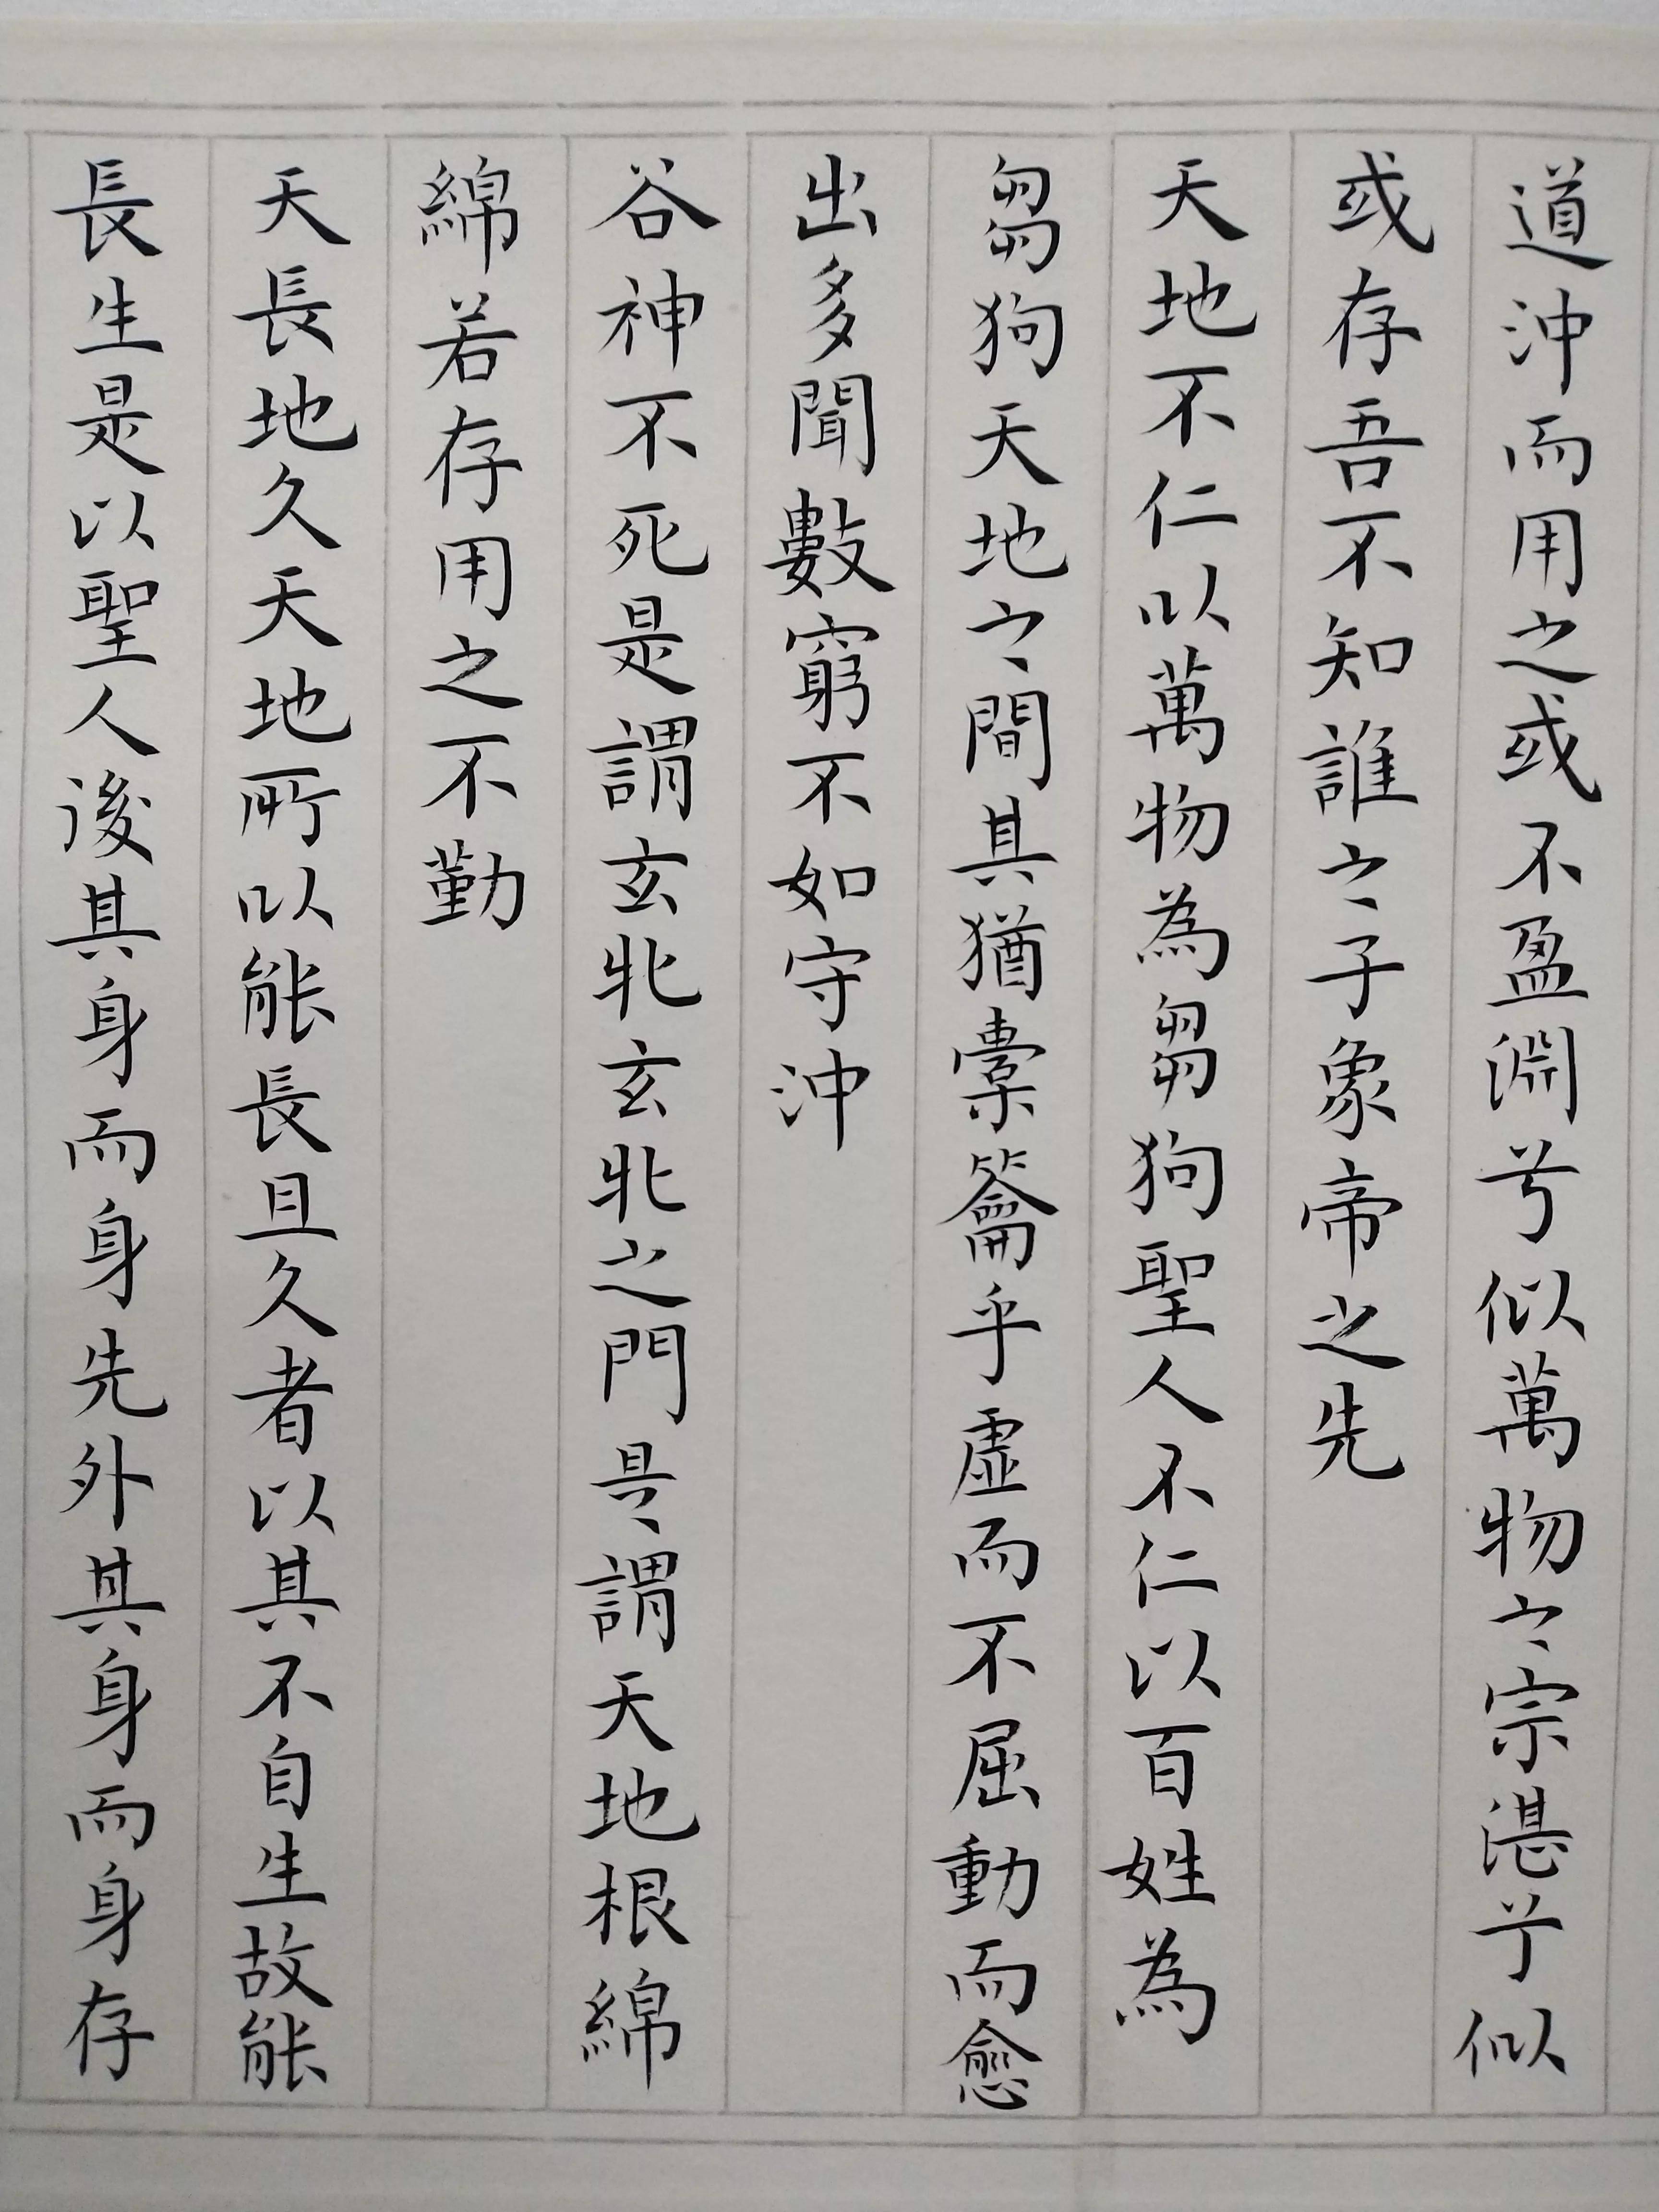 道沖而用之或不盈淵兮似萬物之宗湛兮似
或存吾不知誰之子象帝之先
天地不仁以萬物為芻狗聖人不仁以百姓為
芻狗天地之間其猶橐籥乎虛而不屈動而愈
出多聞數窮不如守沖
谷神不死是謂玄牝玄牝之門是謂天地根綿
綿若存用之不勤
天長地久天地所以能長且久者以其不自生故能
長生是以聖人後其身而身先外其身而身存